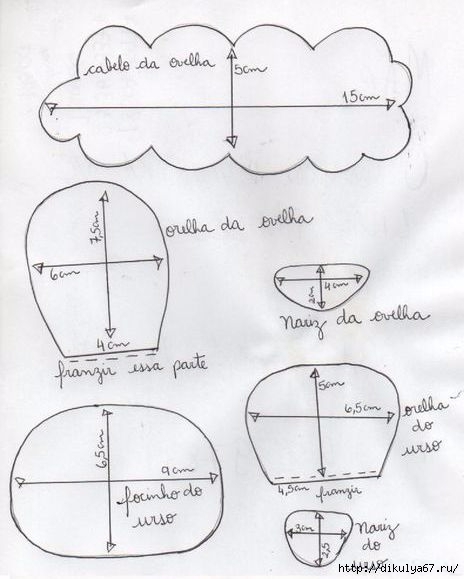 cabelo da ovelha
5cm
15cm
7,5cm
6cm
orelha da ovelha
4cm
franzir essa parte
4cm
2cm
nariz da ovelha
5cm
6,5cm
orelha
do
urso
4,5cm franzir
6,5cm
9cm
focinho do
urso
3cm
2,5
nariz
do
urso
http://dikulya67.ru/